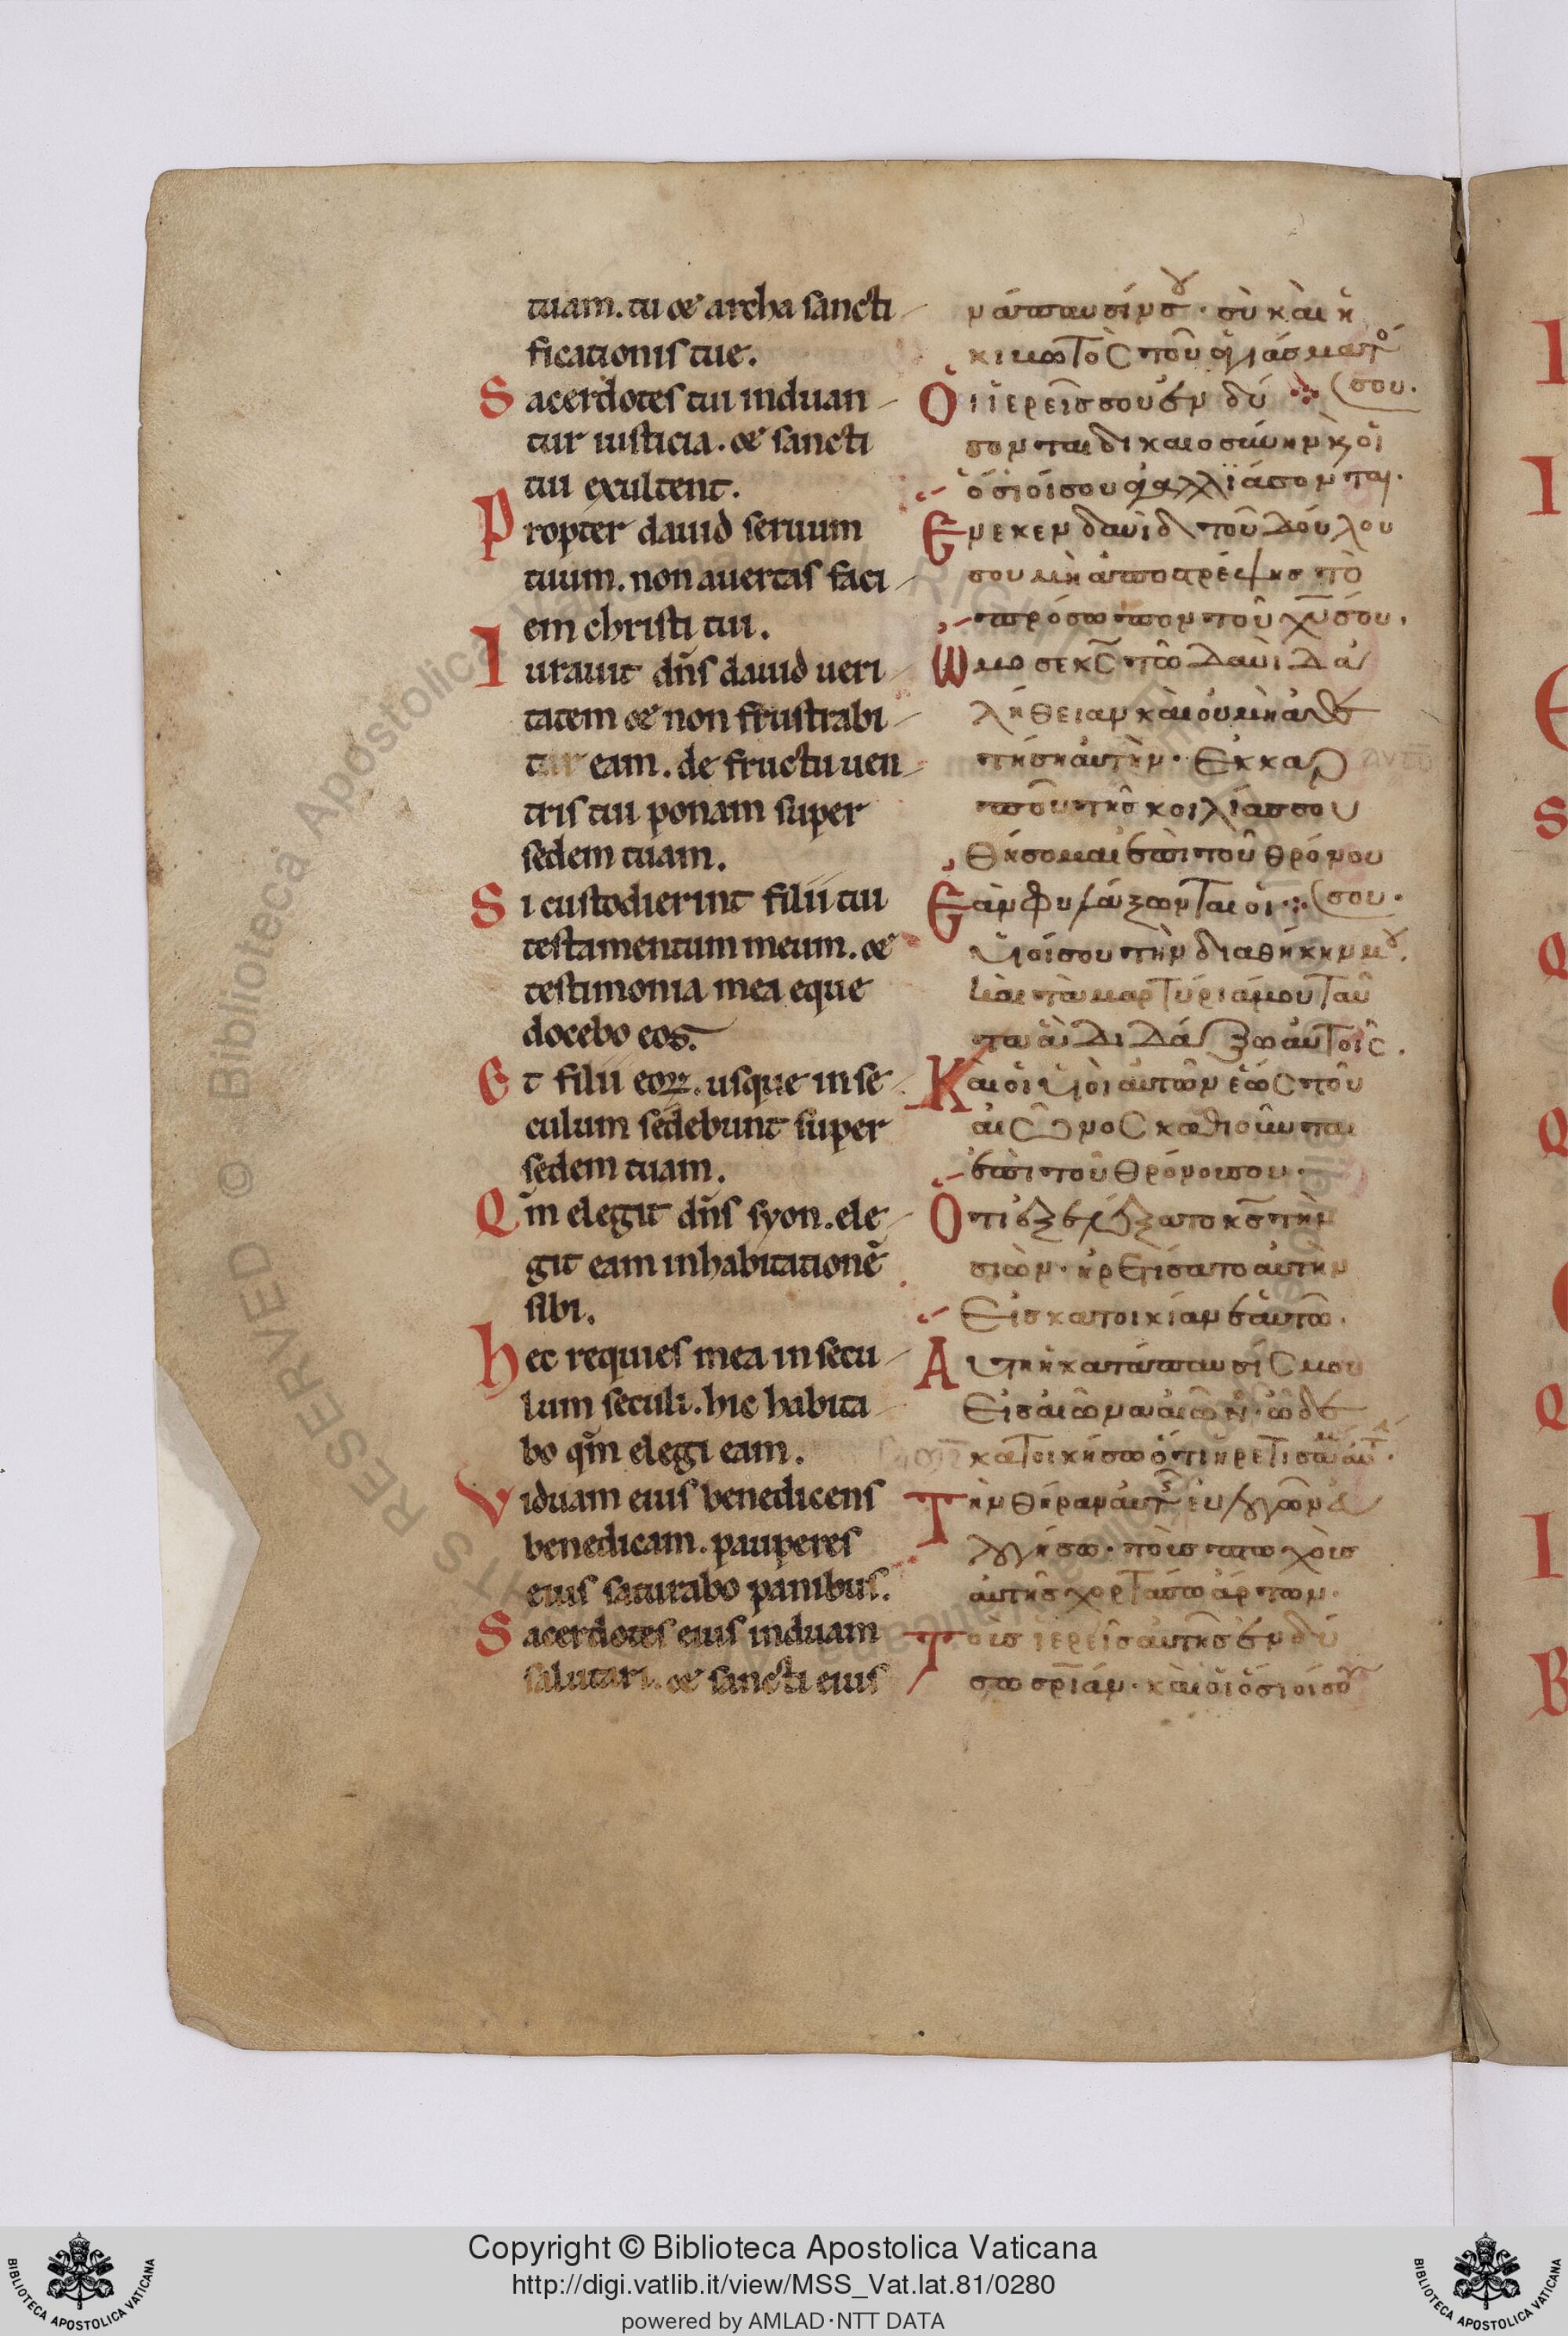 tuam. tu & archa sancti
ficationis tue.
Sacerdotes tui induan
tur iusticia. & sancti
tui exultent.
Propter dauid seruum
tuum. non auertas faci
em christi tui.
Iurauit dn̄s dauid ueri
tatem & non frustrabi
tur eam. de fructu uen
tris tui ponam super
sedem tuam.
Si custodierint filii tui
testamentum meum. &
testimonia mea eque
docebo eos.
Et filii eoꝝ. usque in se
culum sedebunt super
sedem tuam.
Qm̄ elegit dn̄s syon. ele
git eam inhabitationē
sibi.
hec requies mea in secu
lum seculi. hic habita
bo qm̄ elegi eam.
Viduam eius benedicens
benedicam. pauperes
eius saturabo panibus.
Sacerdotes eius induam
salutari. & sancti eius
σὺ κὰι ἡ
κιμωτὸς τοῦ ἁγιάσματο
σου.
Ὁι ϊερεῖς σου ἐν δύ
σονται δικαιοσύνην κ οἱ
ὅσιόι σου ἀγαλλϊάσονται.
Ενεκεν δαυὶδ τοῦ δόυλου
σου μὴ ἀποστρέψησ τὸ
πρόσωπον τοῦ χυ̅ σόυ.
Ωμοσε κς̅ τῶ δαυὶδ ἀ
λήθειαν κὰι ὀυ μὴ ἀθε
τήση ἀυτήν. Εκ καρ
ποῦ τῆσ κοιλίασ σου
θήσομαι ἐπὶ τοῦ θρόνου
σου.
Εὰν φυλάξωνται οἱ
ὑιόι σου τὴν διαθήκην μου.
κὰι τὰ μαρτύριά μου ταῦ
τα ἃ διδάξω ἀυτοῖς.
Κὰι οἱ ὑιὸι ἀυτῶν ἕως τοῦ
ἀιῶνος καθιοῦνται
ἐπὶ τοῦ θρόνου σου.
Ὅτι ἐξελέξατο κς̅ τὴν
σιών. ἡρετίσατο ἀυτὴν
Εἰσ κατοικίαν ἑαυτῶ.
Αὕτη ἡ κατάπαυσίς μου
Εἰσ ἀιῶνα ἀιῶνος. ὧδε
κατοικήσω ὅτι ἡρετισάμην ἀυτ.
Τὴν θήραν ἀυτῆς ἐυλογῶν ἐυ
λογήσω. τὸυσ πτωχὸυσ
ἀυτῆσ χορτάσω ἄρτων.
Τοὺσ ἱερεῖσ ἀυτῆσ ἐνδύ
σω σρι̅άν. κὰι οἱ ὅσιόι σου
Copyright © Biblioteca Apostolica Vaticana
http://digi.vatlib.it/view/MSS_Vat.lat.81/0280
powered by AMLAD·NTT DATA
BIBLIOTECA APOSTOLICA VATICANA
BIBLIOTECA APOSTOLICA VATICANA